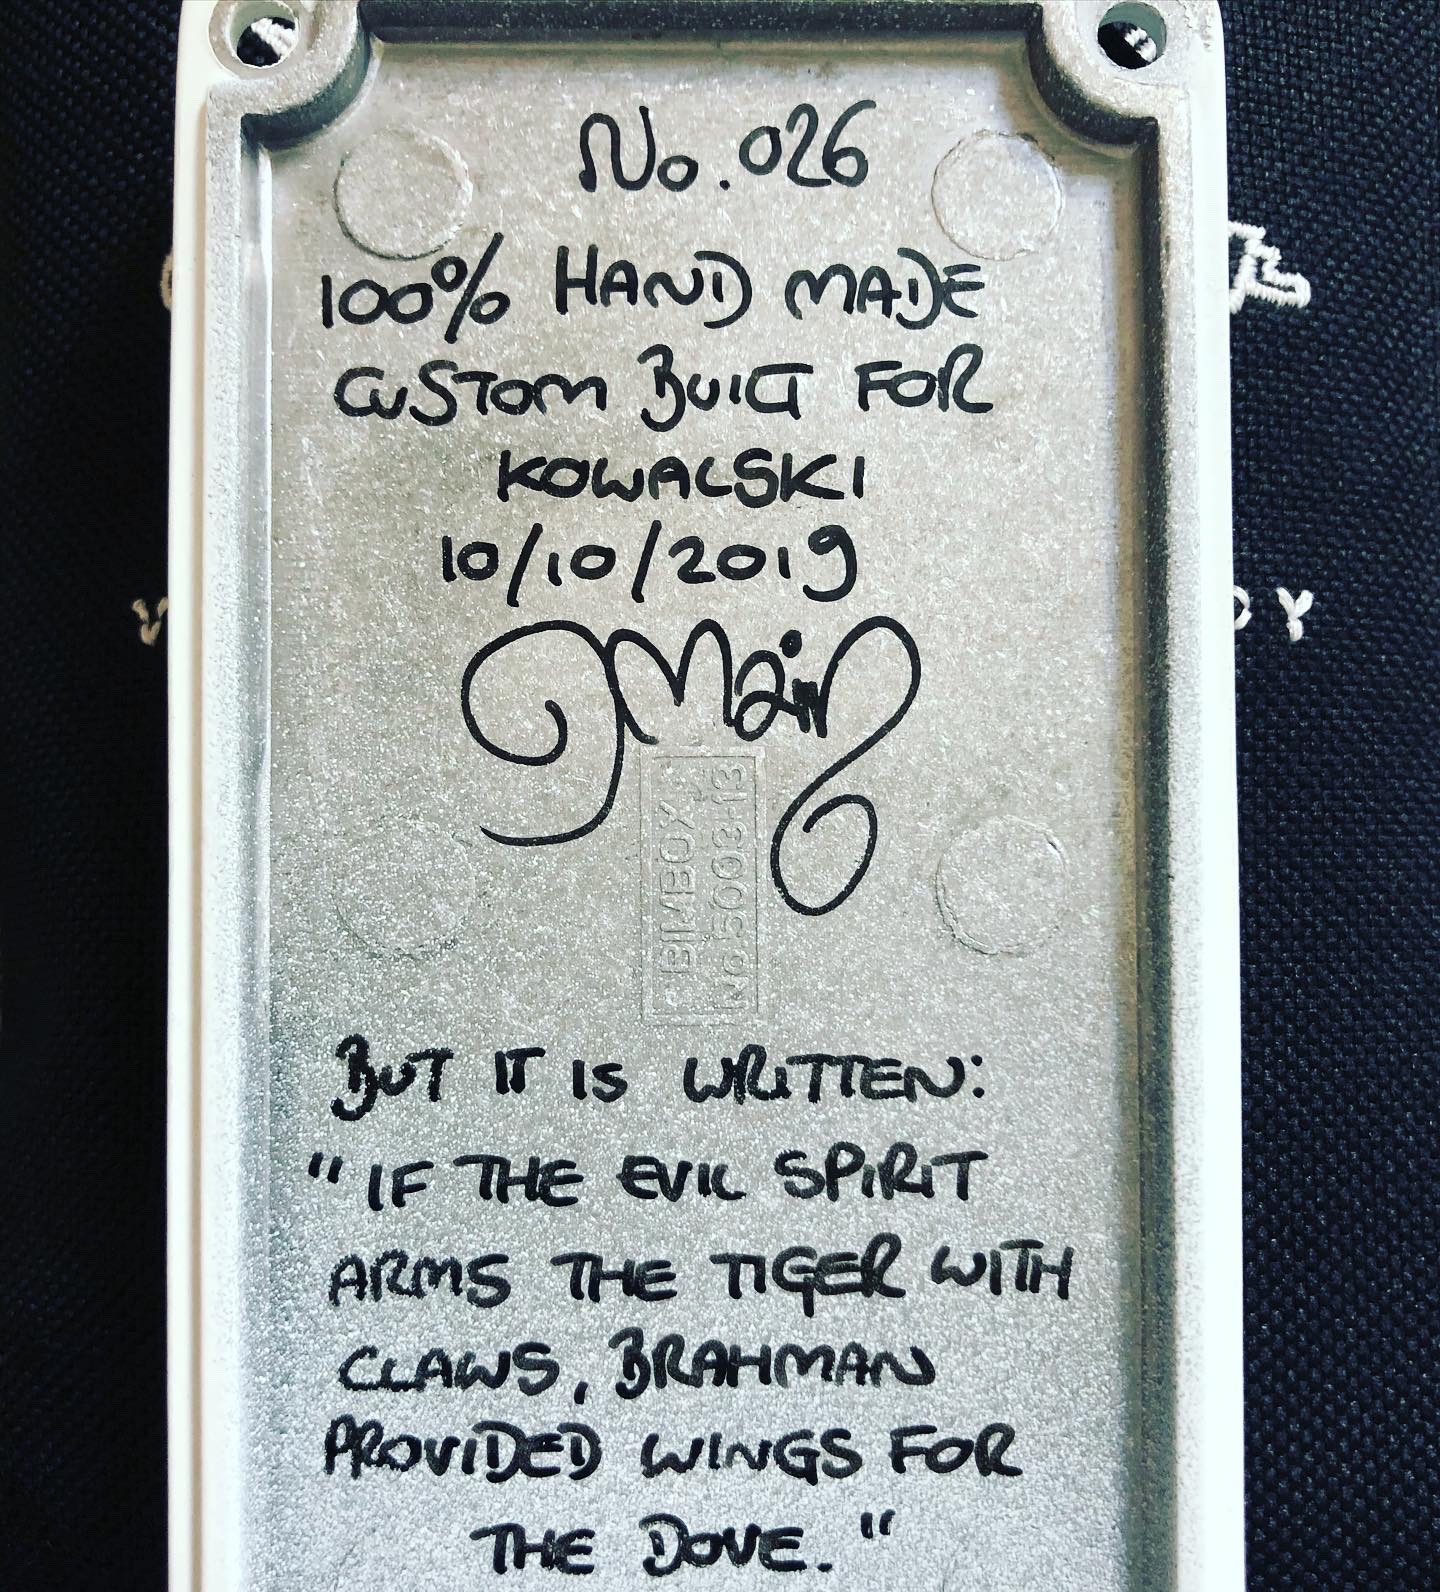 No. 026
100% HAND MADE
CUSTOM BUILT FOR
KOWALSKI
10/10/2019
BIMBOX
No. 5003-13
BUT IT IS WRITTEN:
"IF THE EVIL SPIRIT
ARMS THE TIGER WITH
CLAWS, BRAHMAN
PROVIDED WINGS FOR
THE DOVE."